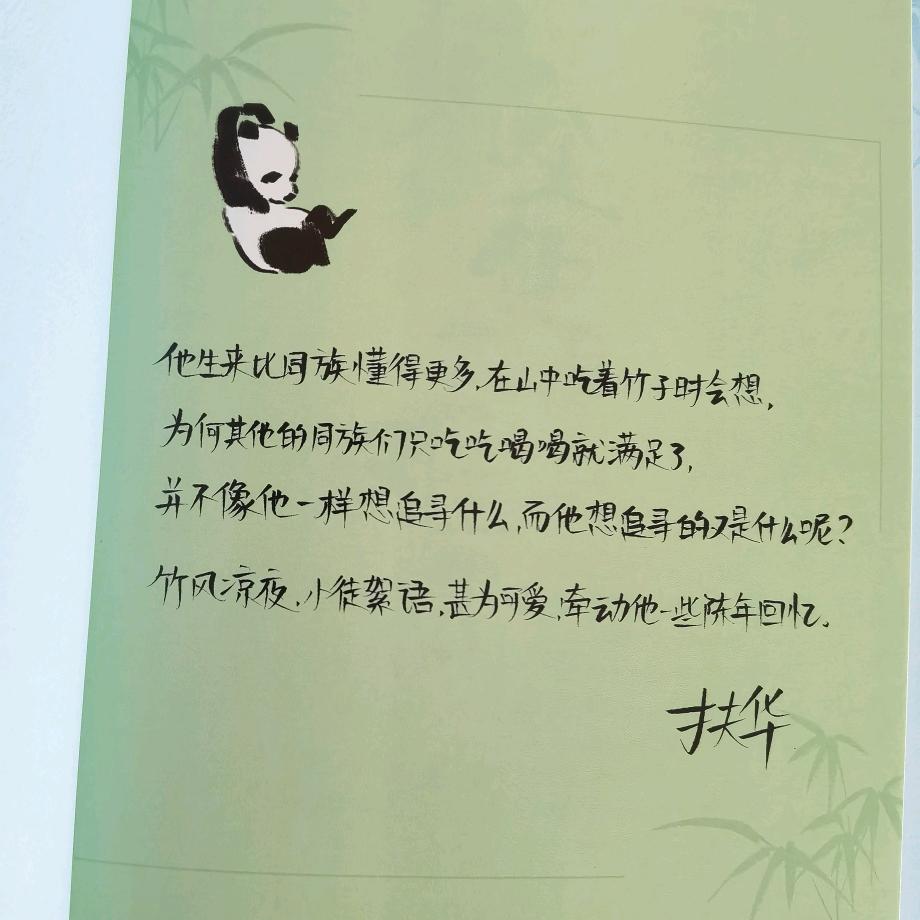 他生来比同族懂得更多,在山中吃着竹子时会想,
为何其他的同族们只吃吃喝喝就满足了,
并不像他一样想追寻什么,而他想追寻的又是什么呢?
竹风凉夜,小徒絮语,甚为可爱,牵动他一些陈年回忆。
扶华